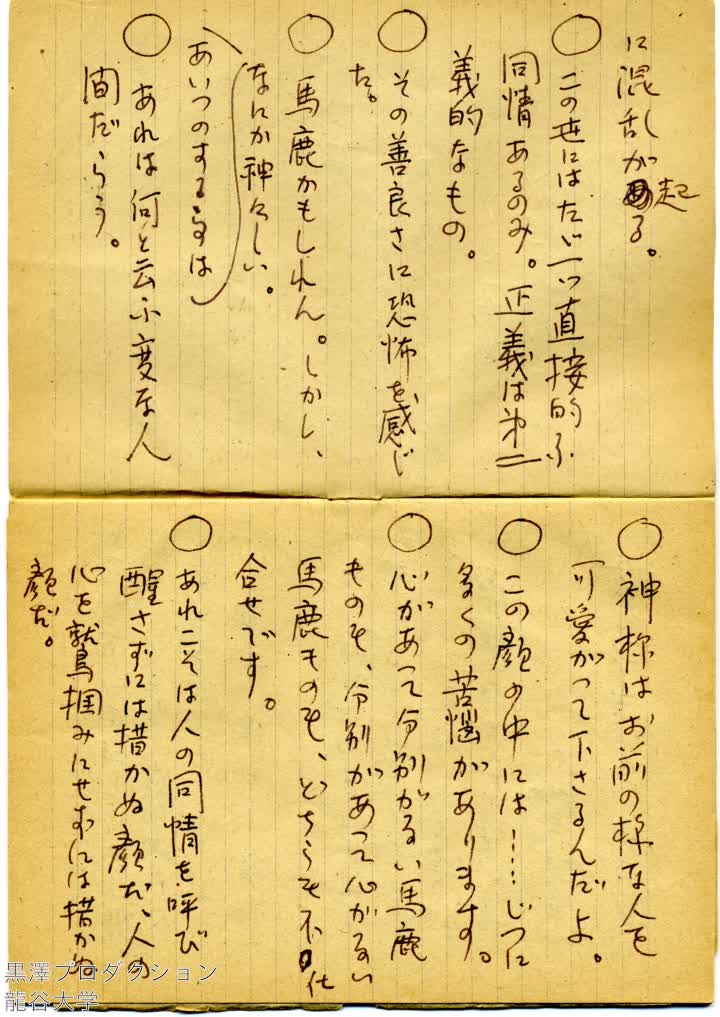 に混乱が起る。
○ この世にはたゞ一つ直接的な
同情あるのみ。正義は第二
義的なもの。
○ その善良さに恐怖を感じ
た。
○ 馬鹿かもしれん。しかし、
なにか神々しい。
あいつのする事は
○ あれは何と云ふ変な人
間だらう。
○ 神様はお前の様な人を
可愛がって下さるんだよ。
○ この顔の中には……じつに
多くの苦悩があります。
○ 心があって分別がない馬鹿
ものも、分別があって心がない
馬鹿ものも、どちらも不仕
合せです。
○ あれこそは人の同情を呼び
醒さずには措かぬ顔だ、人の
心を鷲掴みにせずには措かぬ
顔だ。
黒澤プロダクション
龍谷大学